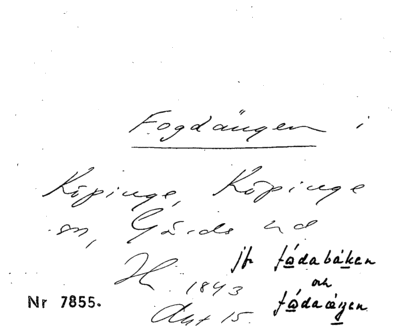 Fogdängen i
Köpinge, Köpinge
sn, Gärds hd
1843
Akt 15.
jfr fådabåken
och
fådaägen
Nr 7855.